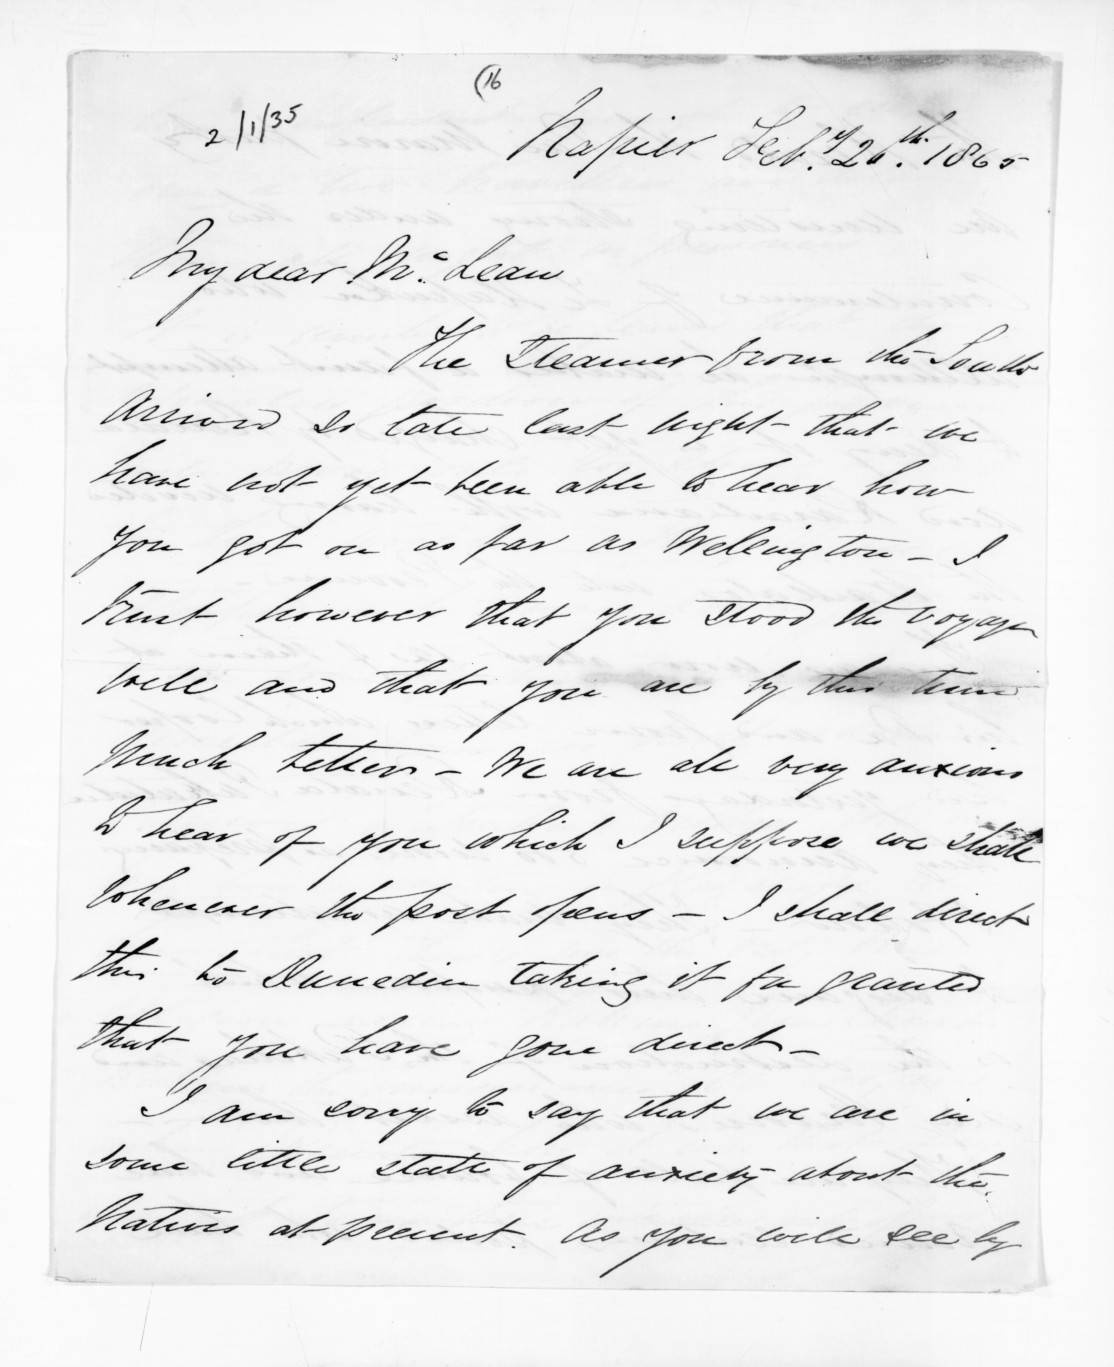 (16
2/1/35
Napier Feb.y 26th. 1865
My dear Mc.Lean
The Steamer from the South
arrived so late last night that we
have not yet been able to hear how
you got on as far as Wellington - I
trust however that you stood the voyage
well and that you are by this time
much better - We are all very anxious
to hear of you which I suppose we shall
whenever the post opens - I shall direct
this to Dunedin taking it for granted
that you have gone direct -
I am sorry to say that we are in
some little state of anxiety about the
Natives at present. As you will see by